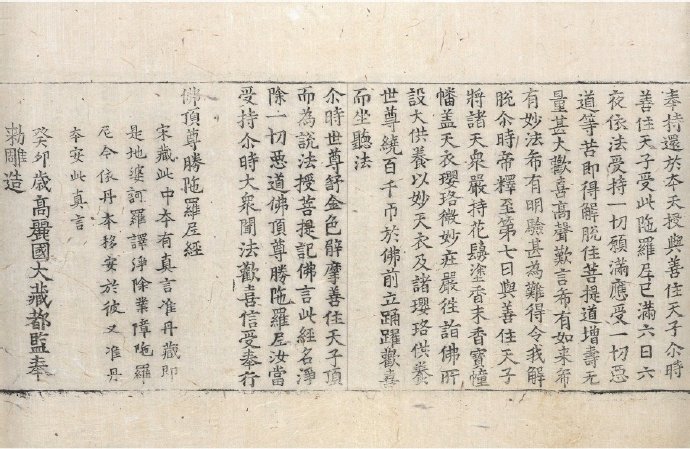 奉持還於本天授與善住天子尒時
善住天子受此陁羅尼已滿六日六
夜依法受持一切願滿應受一切惡
道等苦即得解脫住菩提道增壽無
量甚大歡喜高聲歎言希有如来希
有妙法希有明驗甚為難得令我解
脫尒時帝釋至第七日與善住天子
將諸天衆嚴持花鬘塗香末香寶幢
幡盖天衣瓔珞微妙莊嚴徃詣佛所
設大供養以妙天衣及諸瓔珞供養
世尊繞百千帀於佛前立踊躍歡喜
而坐聽法
尒時世尊舒金色臂摩善住天子頂
而為說法授菩提記佛言此經名淨
除一切惡道佛頂尊勝陁羅尼汝當
受持尒時大衆聞法歡喜信受奉行
佛頂尊勝陁羅尼經
宋藏此中本有真言准丹藏即
是地婆訶羅譯淨除業障陁羅
尼今依丹本移安於彼又准丹
本安此真言
癸卯歲高麗國大藏都監奉
勑雕造